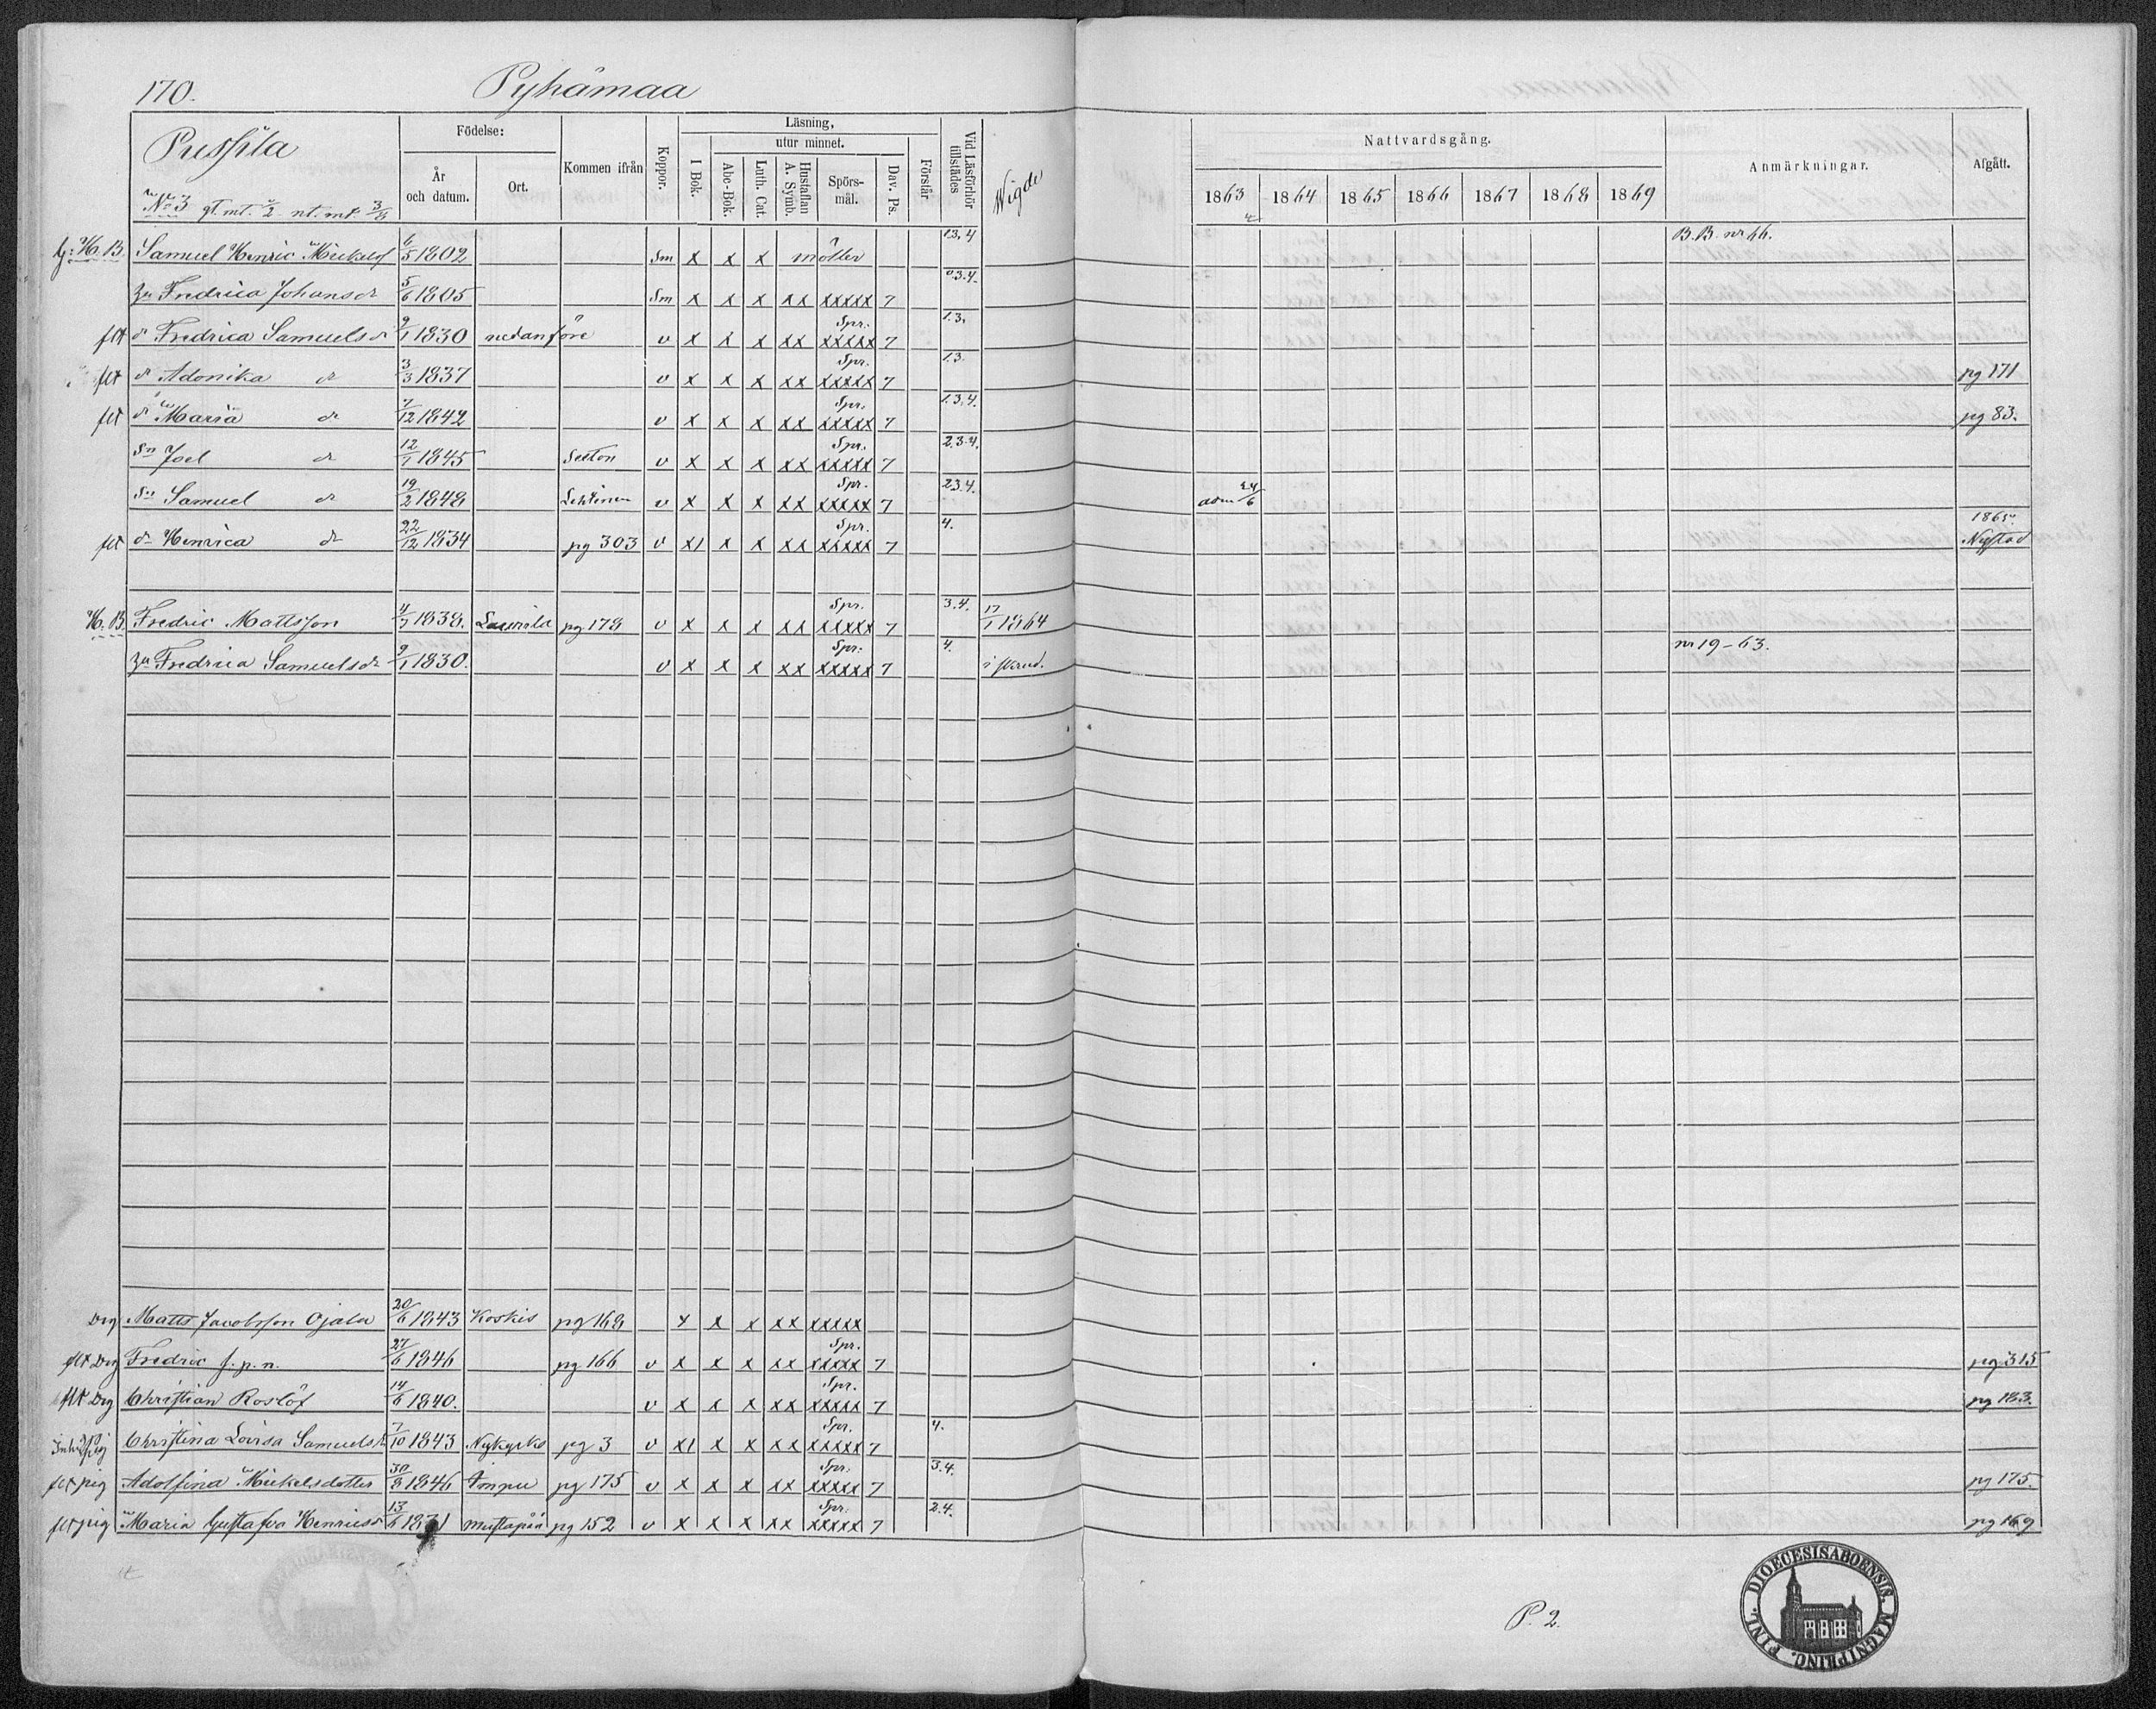 170. Pyhämaa
Pussila
No 3 gt. mt. 1/2 nt. mt. 3/8
Födelse:
År och datum.
Ort.
Kommen ifrån
Koppor.
Läsning,
I Bok.
utur minnet.
Abc-Bok.
Luth. Cat.
Hustaflan A. Symb.
Spörs-mål.
Dav. Ps.
Förstår
Vid Läsförhör tillstädes
Wigde
Nattvardsgång.
1863 1864 1865 1866 1867 1868 1869
Anmärkningar.
Afgått.
H. B. Samuel Henric Mickelsf 6/5 1802 Sm x x x möller 1.3.4 B. B. nr 66.
Fredrica Johansdr 5/6 1805 Sm x x x xx xxxxx 7 3.4.
flt dr Fredrica Samuelsdr 9/1 1830 nedanföre v x x x xx Spr. xxxxx 7 1.3.
flt dr Adonika dr 3/3 1837 v x x x xx Spr. xxxxx 7 1.3. pg 171
flt dr Maria dr 7/12 1842 v x x x xx Spr. xxxxx 7 1.3.4. pg 83.
Sn Joel dr 12/1 1845 v x x x xx Spr. xxxxx 7 2.3.4.
Sn Samuel dr 19/2 1848 Lehtinen v x x x xx Spr. xxxxx 7 2.3.4. adm 24/6
flt dr Henrica dr 22/12 1834 pg 303 v x1 x x xx Spr. xxxxx 7 4. 1865. Nystad
H. B. Fredric Mattsson 4/7 1838. Laurila pg 178 v x x x xx Spr. xxxxx 7 3.4. 17/1 1864
Fredrica Samuelsdr 9/1 1830. v x x x xx Spr. xxxxx 7 4. nr 19-63.
Drg Matts Jacobsson Ojala 20/6 1843 Koskis pg 168 x x x xx xxxxx
flt Drg Fredric f. p. n. 27/6 1846 pg 166 v x x x xx Spr. xxxxx 7 pg 315
flt Drg Christian Roslöf 14/6 1840. v x x x xx Spr. xxxxx 7 pg 183.
Christina Lovisa Samuelsdr 7/10 1843 Nykyrko pg 3 v x1 x x xx Spr. xxxxx 7 4.
flt pig Adolfina Mickelsdotter 30/8 1846 Impu pg 175 v x x x xx Spr. xxxxx 7 3.4. pg 175.
flt pig Maria Gustafva Henricsdr 13/6 pg 152 v x x x xx Spr. xxxxx 7 2.4. pg 169
P. 2.
DIOECESISABOENSIS. MAGNIPRINC. FINL.